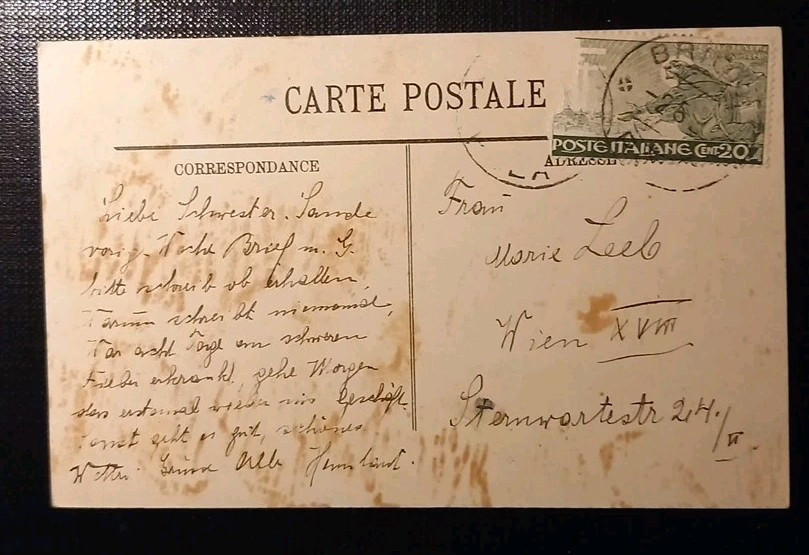 CARTE POSTALE
POSTE ITALIANE CENT 20
CORRESPONDANCE
ADRESSE
Liebe Schwester. Sande
vorig. Woche Brief m. G.
bitte schreib ob erhalten,
Warum schreibt niemand,
War acht Tage an schweren
Fieber erkrankt, gehe Morgen
das erstemal wieder ins Geschäft.
Sonst geht es gut, schönes
Wetter. Grüsse Alle
Frau
Marie Leeb
Wien XVIII
Sternwartestr 24./II.